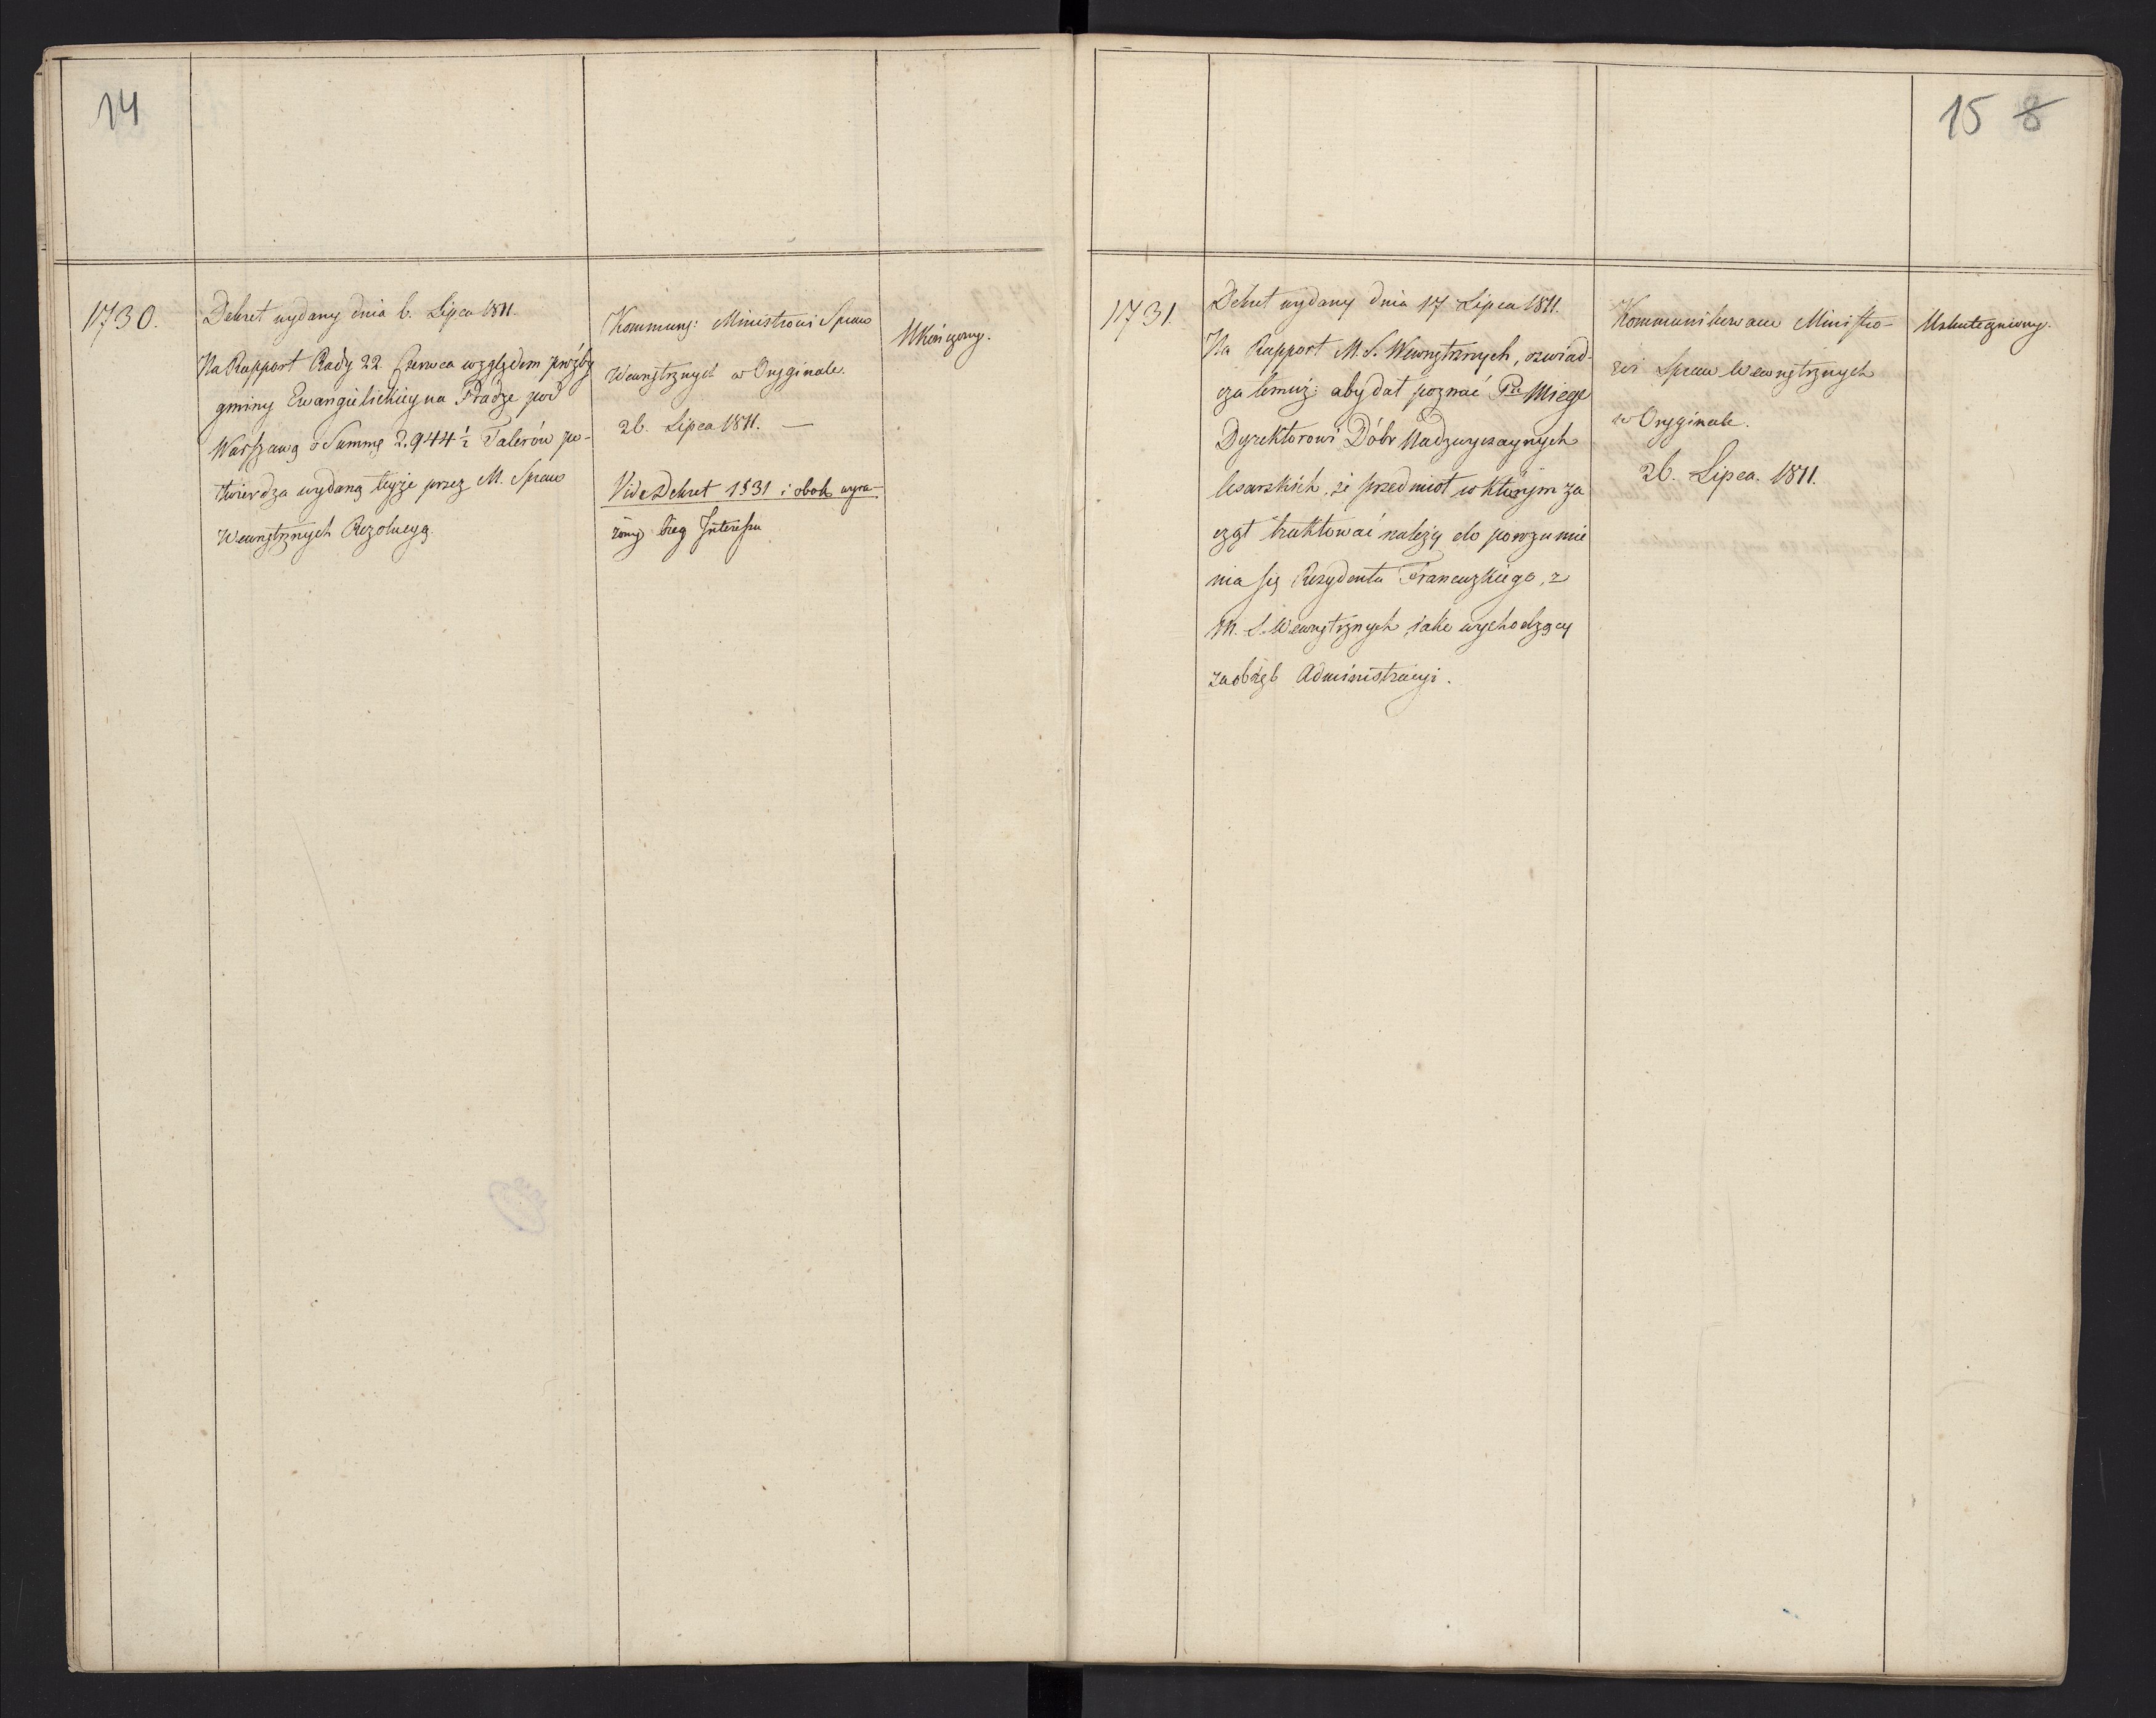 14
1730.
Dekret wydany dnia 6. Lipca 1811.
Na Rapport Rady 22. Czerwca względem prożby
gminy Ewangielickiey na Pradze pod
Warszawą o Summę 2.944 ½ Talerów po-
twierdza wydaną teyże przez M. Spraw
Wewnętrznych Rezolucyą.
Kommunj: Ministrowi Spraw
Wewnętrznych w Oryginale.
26. Lipca 1811. —
Vide Dekret 1531 i obok wyra-
żony bieg Interessu
Ukończony.
15 8
1731.
Dekret wydany dnia 17 Lipca 1811.
Na Rapport M. S. Wewnętrznych, oswiad-
cza temuż: aby dał poznać Pu Miege
Dyrektorowi Dóbr Nadzwyczaynych
Cesarskich, że przedmiot w którym za
czął traktować należy do porozumie
nia się Rezydenta Francuzkiego, z
M. S. Wewnętrznych, iako wychodzący
za obręb Administracyi.
Kommunikowane Ministro-
wi Spraw Wewnętrznych
w Oryginale.
26. Lipca. 1811.
Uskuteczniony.